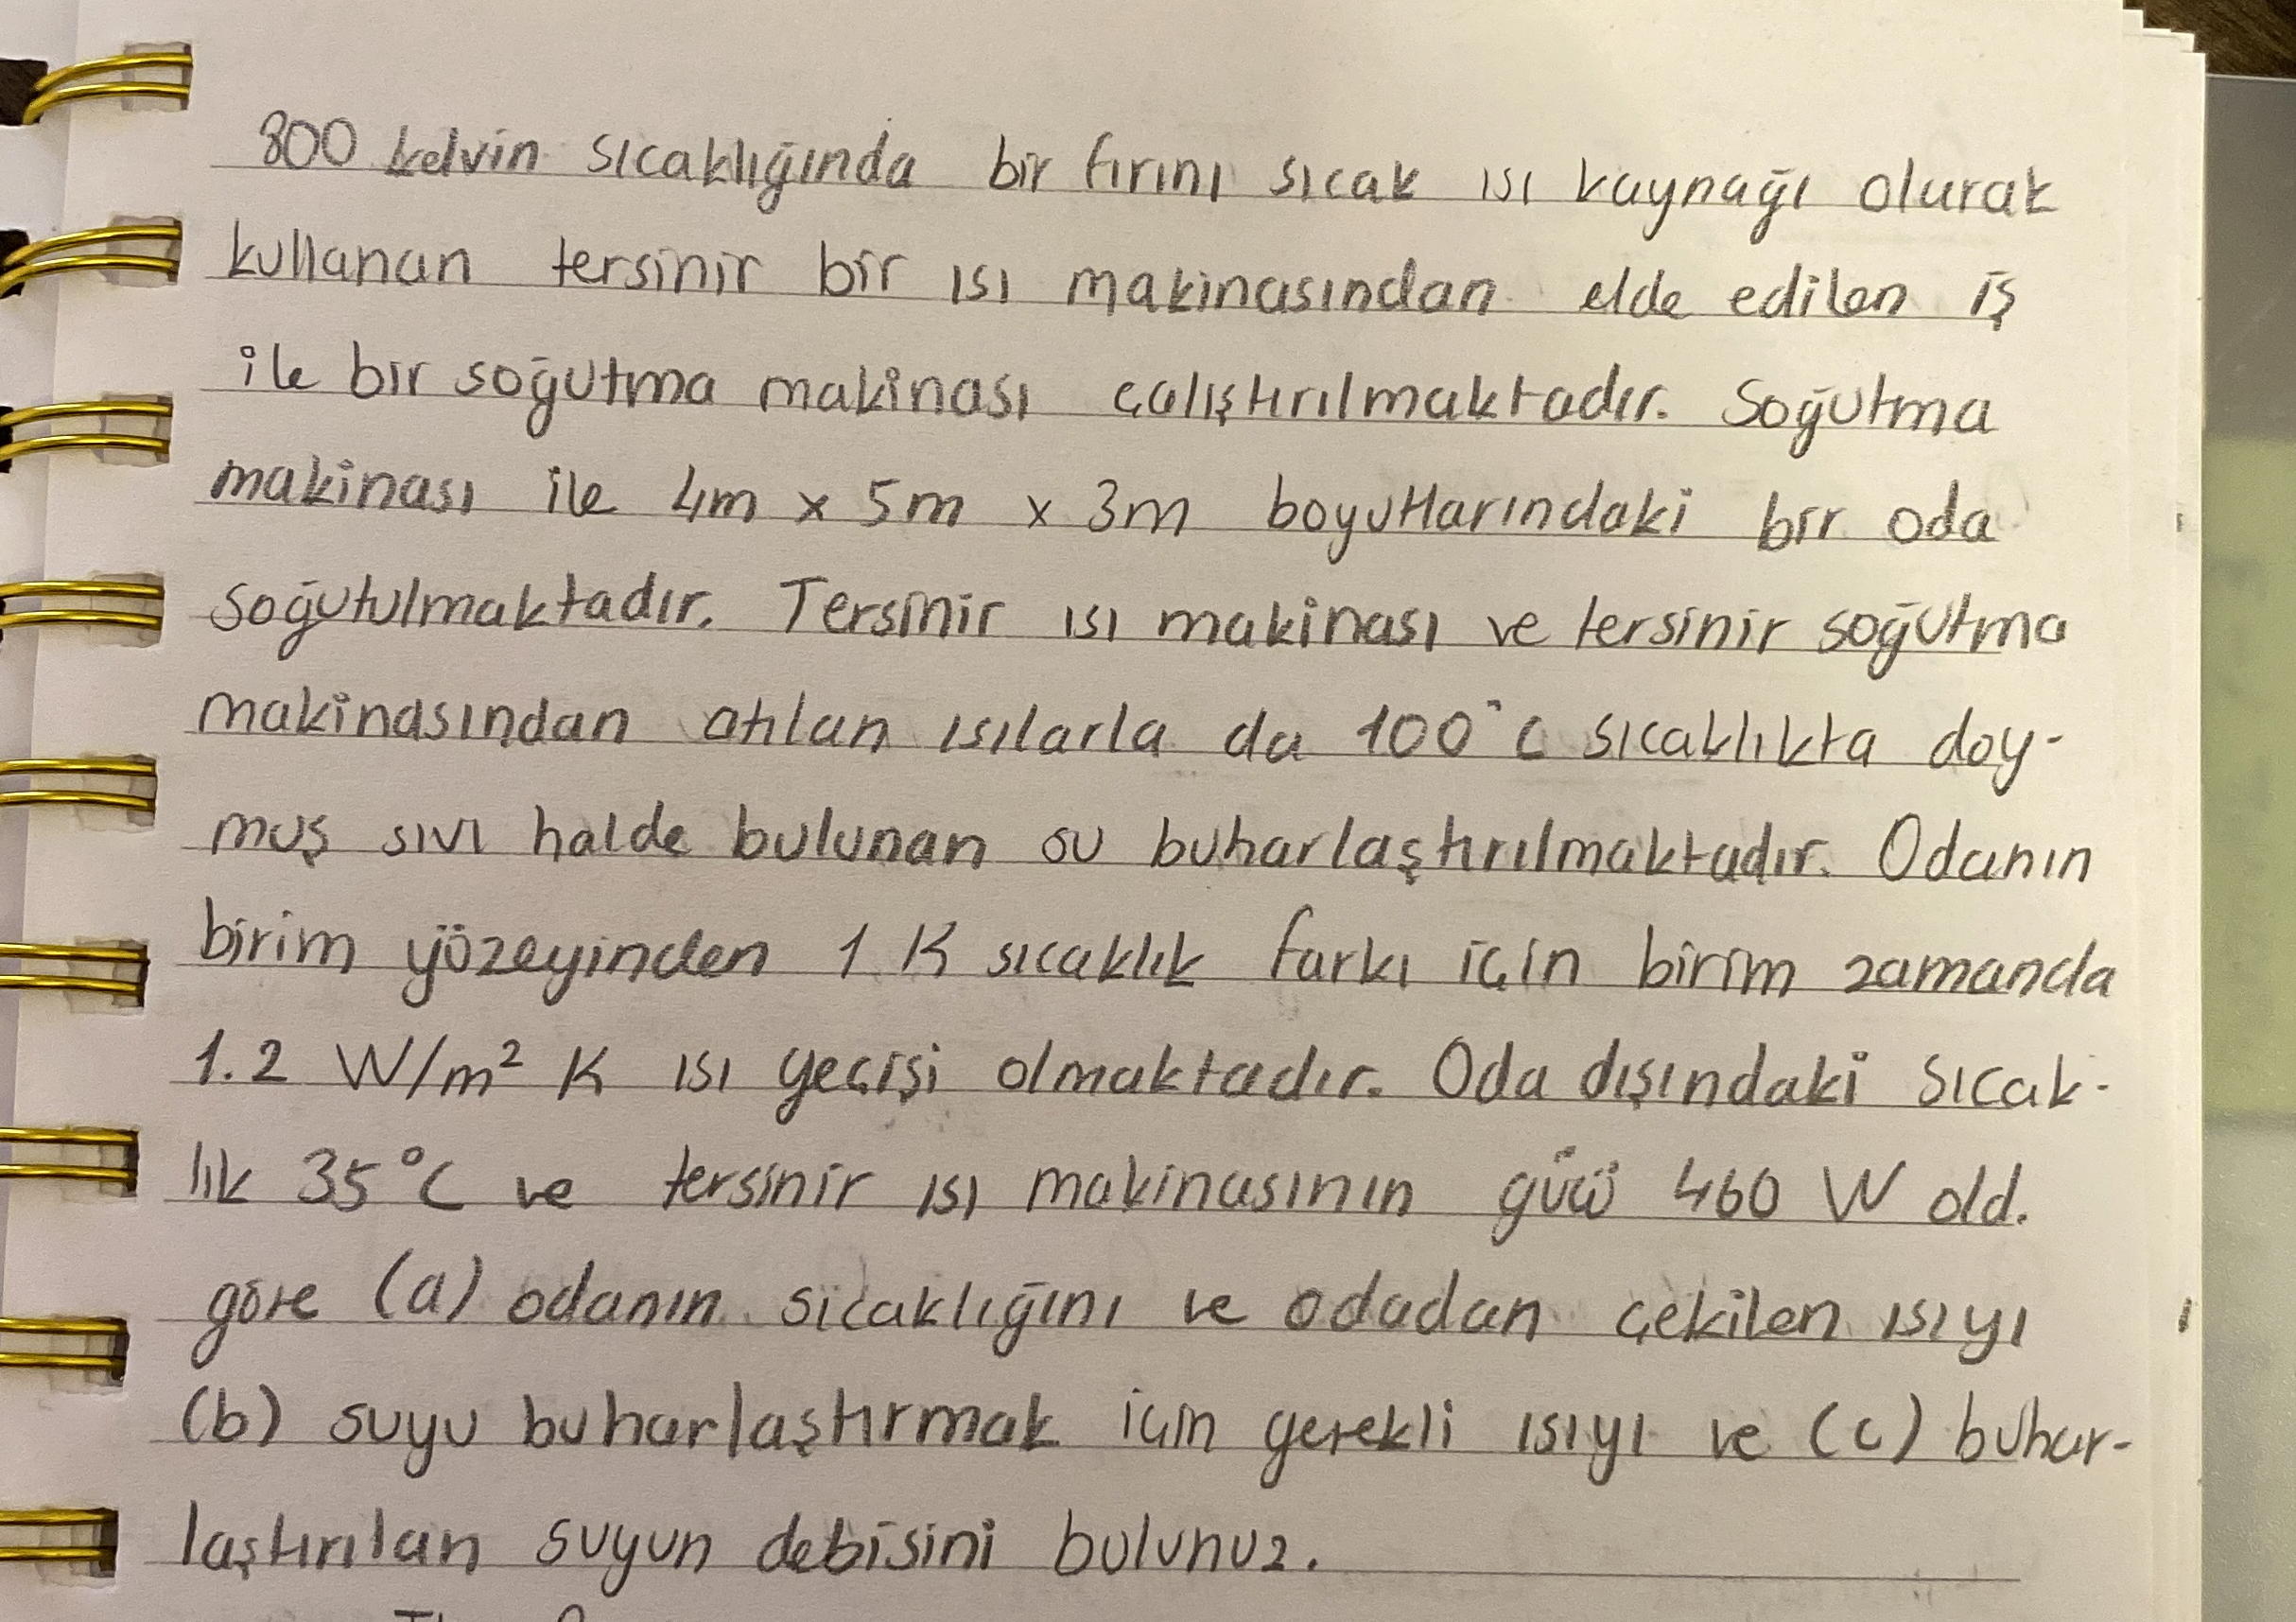 800 kelvin sıcaklığında bir fırını sıcak ısı kaynağı olarak
kullanan tersinir bir ısı makinasından elde edilen iş
ile bir soğutma makinası çalıştırılmaktadır. Soğutma
makinası ile 4m x 5m x 3m boyutlarındaki bir oda
soğutulmaktadır. Tersinir ısı makinası ve tersinir soğutma
makinasından atılan ısılarla da 100°C sıcaklıkta doy-
muş sıvı halde bulunan su buharlaştırılmaktadır. Odanın
birim yüzeyinden 1 K sıcaklık farkı için birim zamanda
1.2 W/m² K ısı geçişi olmaktadır. Oda dışındaki sıcak-
lık 35°C ve tersinir ısı makinasının gücü 460 W old.
göre (a) odanın sıcaklığını ve odadan çekilen ısıyı
(b) suyu buharlaştırmak için gerekli ısıyı ve (c) buhar-
laştırılan suyun debisini bulunuz.